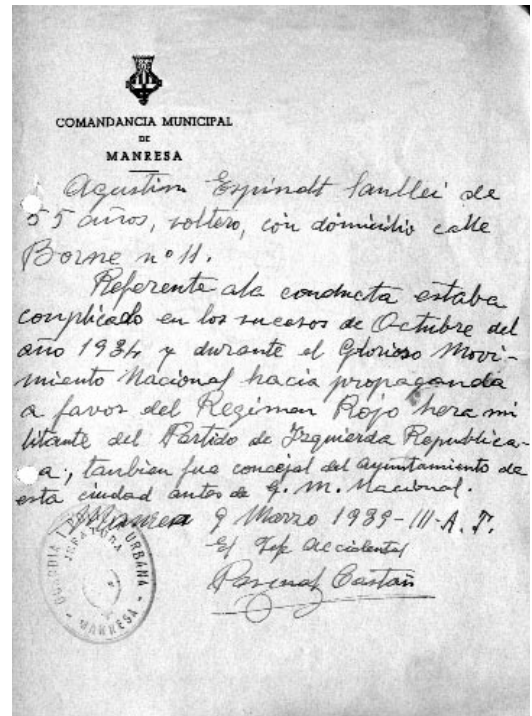 COMANDANCIA MUNICIPAL
DE
MANRESA
Agustin Espinalt Sanllei de
55 años, soltero, con domicilio calle
Borne nº 11.
Referente ala conducta estaba
complicado en los sucesos de Octubre del
año 1934 y durante el Glorioso Movi-
miento Nacional hacia propaganda
a favor del Regimen Rojo hera mi
litante del Partido de Izquierda Republica-
a, tanbien fue concejal del ayuntamiento de
esta ciudad antes de G. M. Nacional.
Manresa 9 Marzo 1939-III-A. T.
El Jefe Accidental
Pascual Castañ
GUARDIA URBANA
JEFATURA
MANRESA